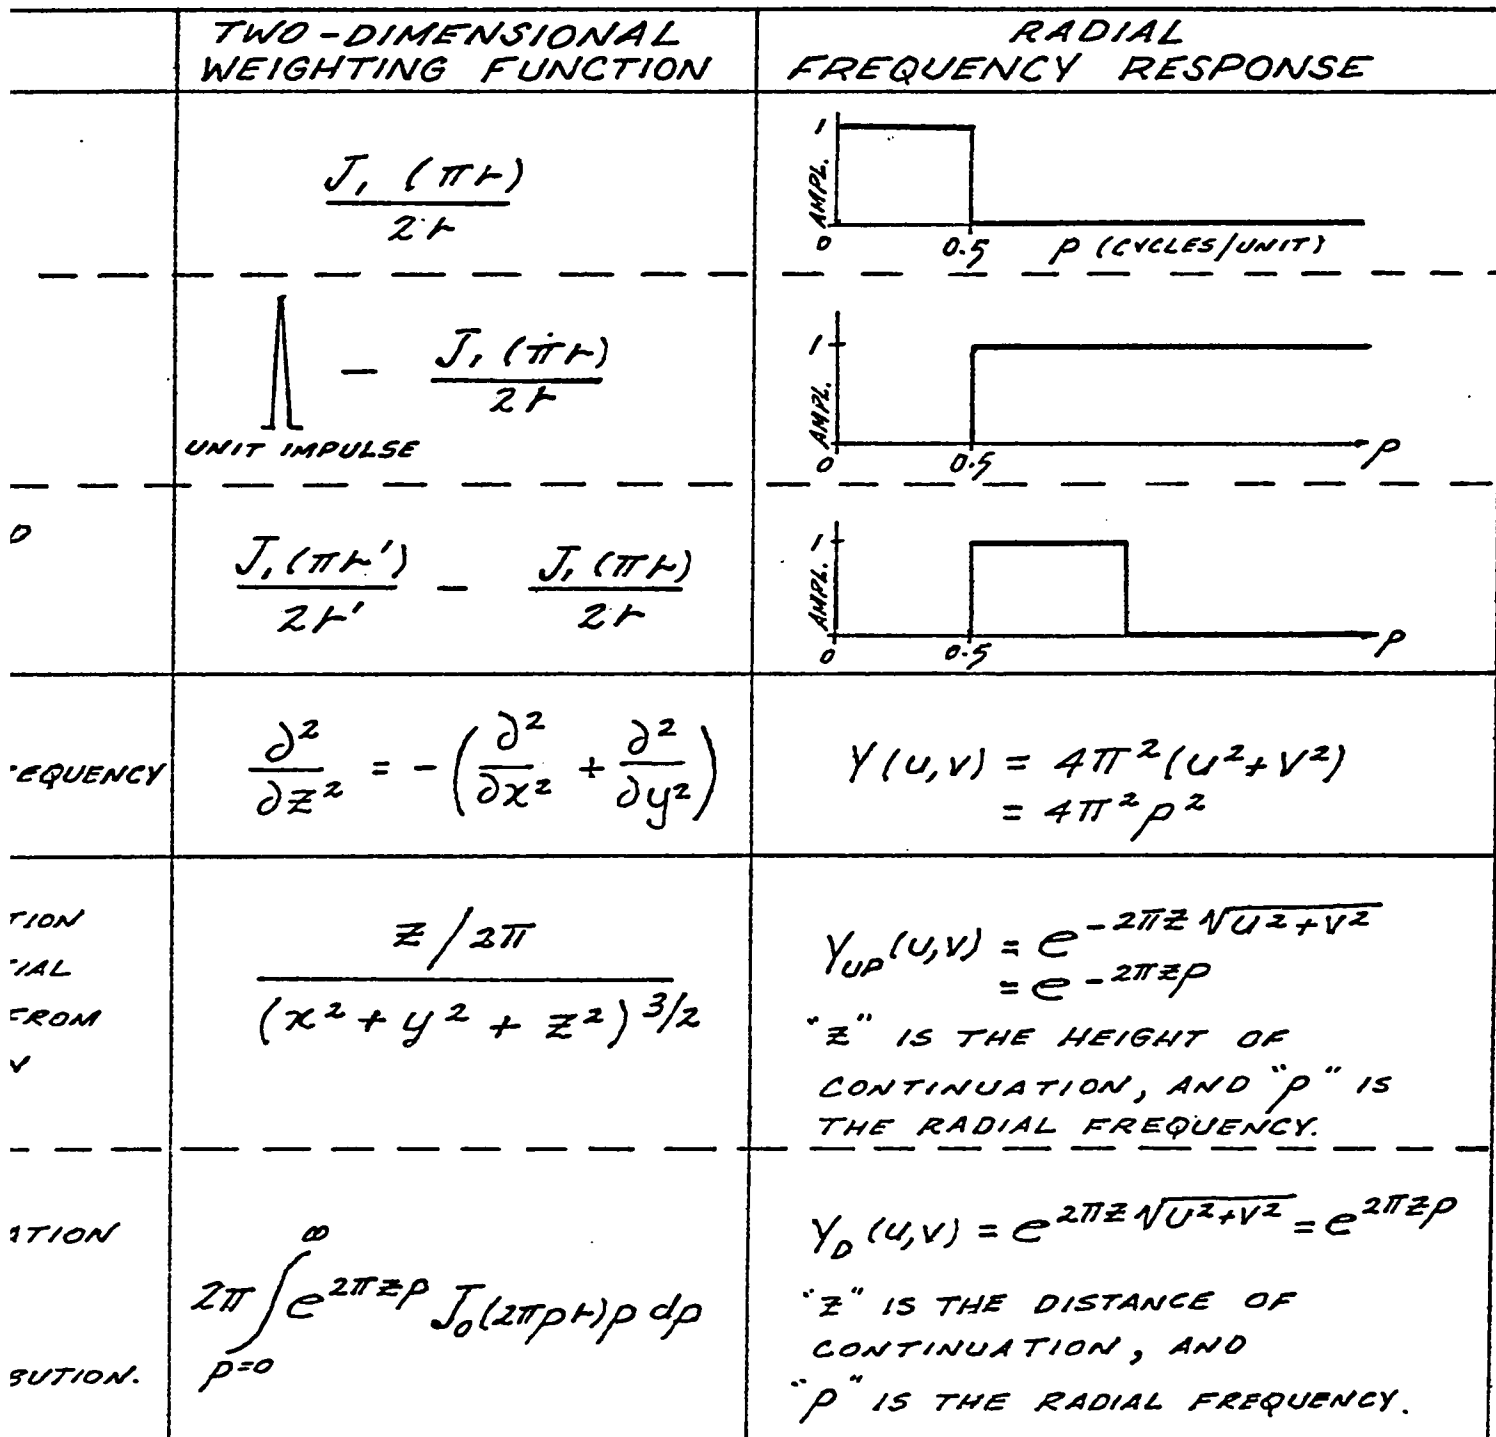 TWO-DIMENSIONAL
WEIGHTING FUNCTION
RADIAL
FREQUENCY RESPONSE
J₁ (πr)
2r
1
AMPL.
0
0.5
ρ (CYCLES/UNIT)
UNIT IMPULSE
— J₁ (πr)
2r
1
AMPL.
0
0.5
ρ
D
J₁(πr') — J₁(πr)
2r' 2r
1
AMPL.
0
0.5
ρ
EQUENCY
∂²/∂z² = -(∂²/∂x² + ∂²/∂y²)
Y(u,v) = 4π²(u²+v²)
= 4π²ρ²
TION
IAL
FROM
z/2π
(x² + y² + z²)^3/2
Y_UP(u,v) = e^-2πz√u²+v²
= e^-2πzρ
"z" IS THE HEIGHT OF
CONTINUATION, AND "ρ" IS
THE RADIAL FREQUENCY.
ATION
BUTION.
2π ∫ e^2πzρ J₀(2πρr)ρ dρ
∞
ρ=0
Y_D(u,v) = e^2πz√u²+v² = e^2πzρ
"z" IS THE DISTANCE OF
CONTINUATION, AND
"ρ" IS THE RADIAL FREQUENCY.